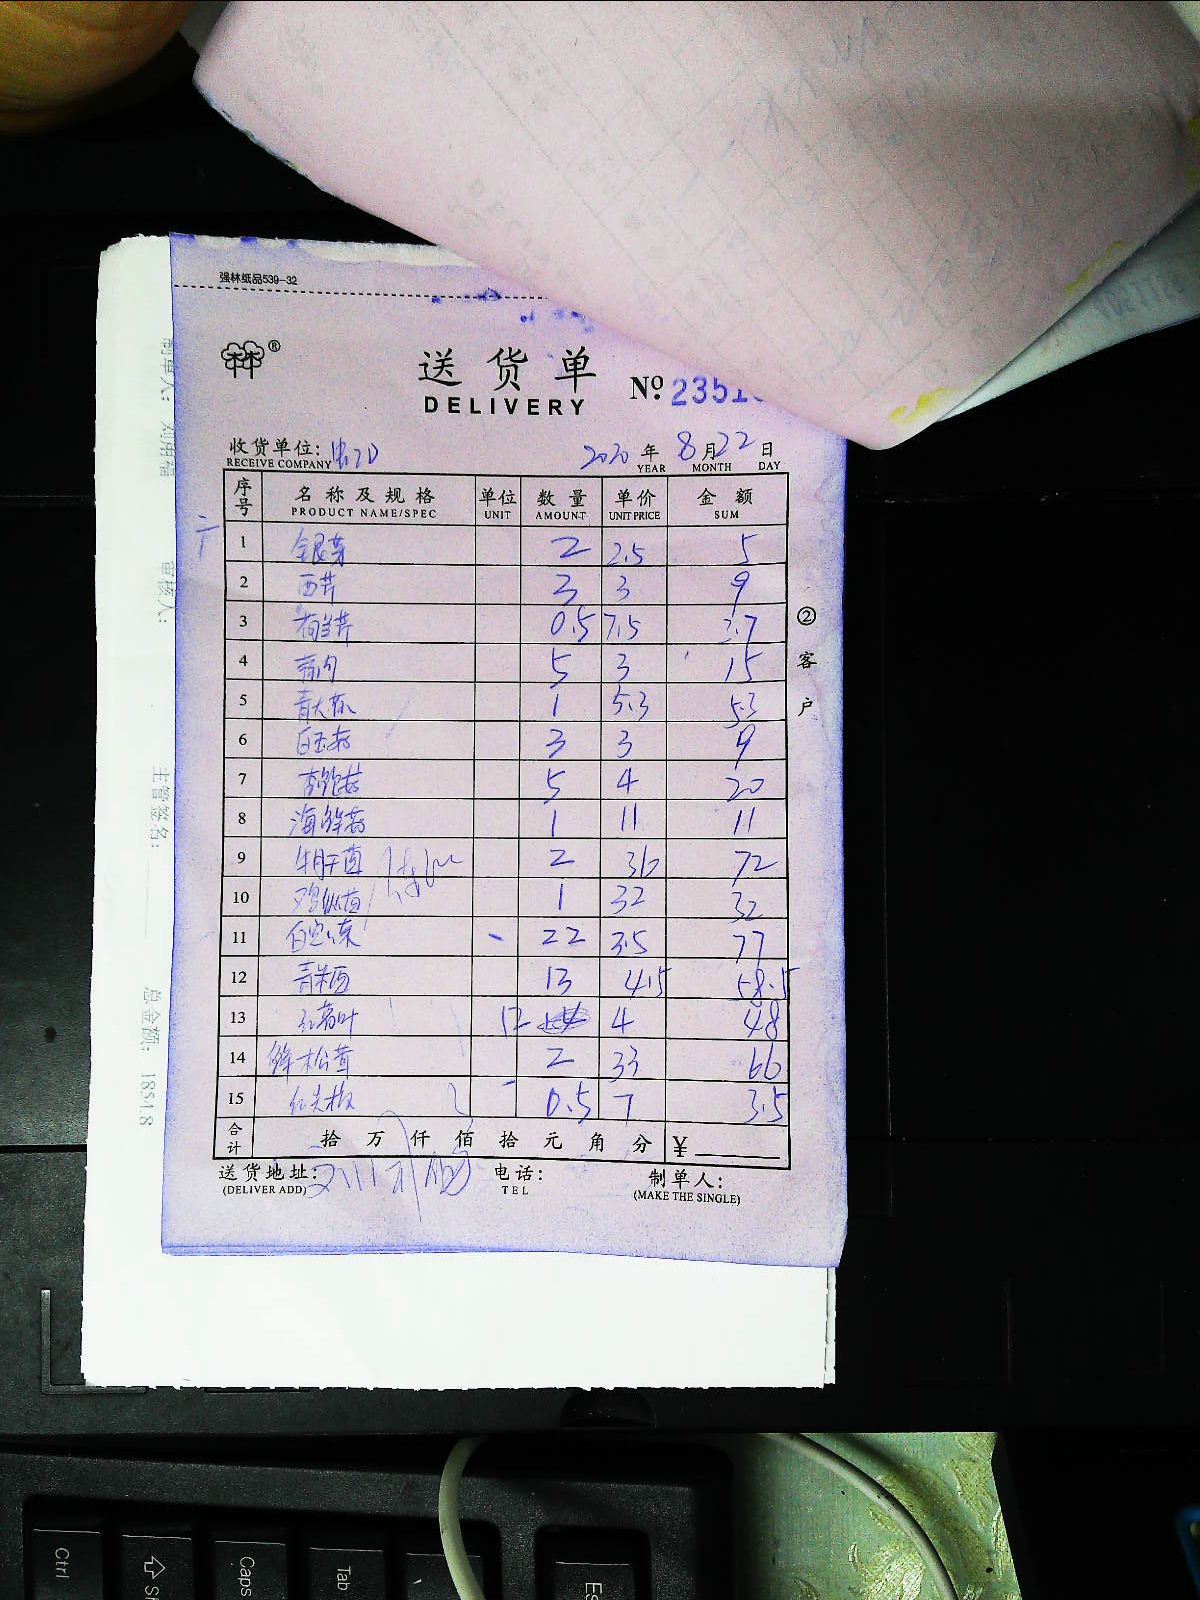 强林纸品539-32
®
送货单
DELIVERY
№ 2351
收货单位:
RECEIVE COMPANY
2020 年 8 月 22 日
YEAR MONTH DAY
序号 名称及规格 单位 数量 单价 金额
PRODUCT NAME/SPEC UNIT AMOUNT UNIT PRICE SUM
1 银芽 2 2.5 5
2 西芹 3 3 9
3 0.5 7.5 3.7
4 5 3 15
5 1 5.3 5.3
6 白玉菇 3 3 9
7 杏鲍菇 5 4 20
8 海鲜菇 1 11 11
9 牛肝菌 2 36 72
10 鸡枞菌 1 32 32
11 22 3.5 77
12 13 4.5 58.5
13 12 4 48
14 鲜松茸 2 33 66
15 红尖椒 0.5 7 3.5
合计 拾 万 仟 佰 拾 元 角 分 ¥
送货地址: 电话: 制单人:
(DELIVER ADD) TEL (MAKE THE SINGLE)
②客户
制单人: 刘用福
审核人:
主管签名:
总金额: 1854.8
Ctrl
Caps
Tab